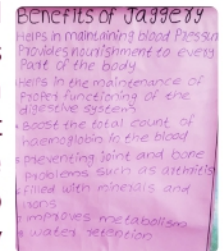 Benefits of Jaggery
Helps in maintaining blood Pressur
Provides nourishment to every
Part of the body
Helps in the maintenance of
Proper functioning of the
digestive system
• Boost the total count of
haemoglobin in the blood
• preventing joint and bone
Problems such as arthritis
• filled with minerals and
irons
improves metabolism
• water retention